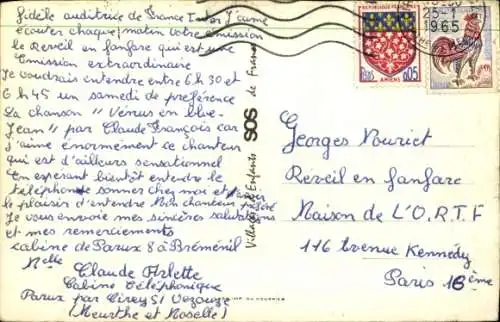 fidèle auditrice de France Inter J'aime
écouter chaque matin votre émission
le Réveil en fanfare qui est une
Emission extraordinaire
Je voudrais entendre entre 6h30 et
6h45 un samedi de préférence
La chanson "Vénus en blue-
Jean" par Claude François car
j'aime énormément ce chanteur
qui est d'ailleurs sensationnel
En espérant bientôt entendre le
téléphone sonner chez moi et
le plaisir d'entendre Mon chanteur préféré
Je vous envoie mes sincères salutations
et mes remerciements
cabine de Parux 8 à Bréménil
Melle Claude Arlette
Cabine téléphonique
Parux par Cirey S/ Vezouze
(Meurthe et Moselle)
Villages d'Enfants SOS de France
REPUBLIQUE FRANÇAISE
0,05
AMIENS
25-1
1965
Georges Louriet
Réveil en fanfare
Maison de L'O.R.T.F
116 Avenue Kennedy
Paris 16ème